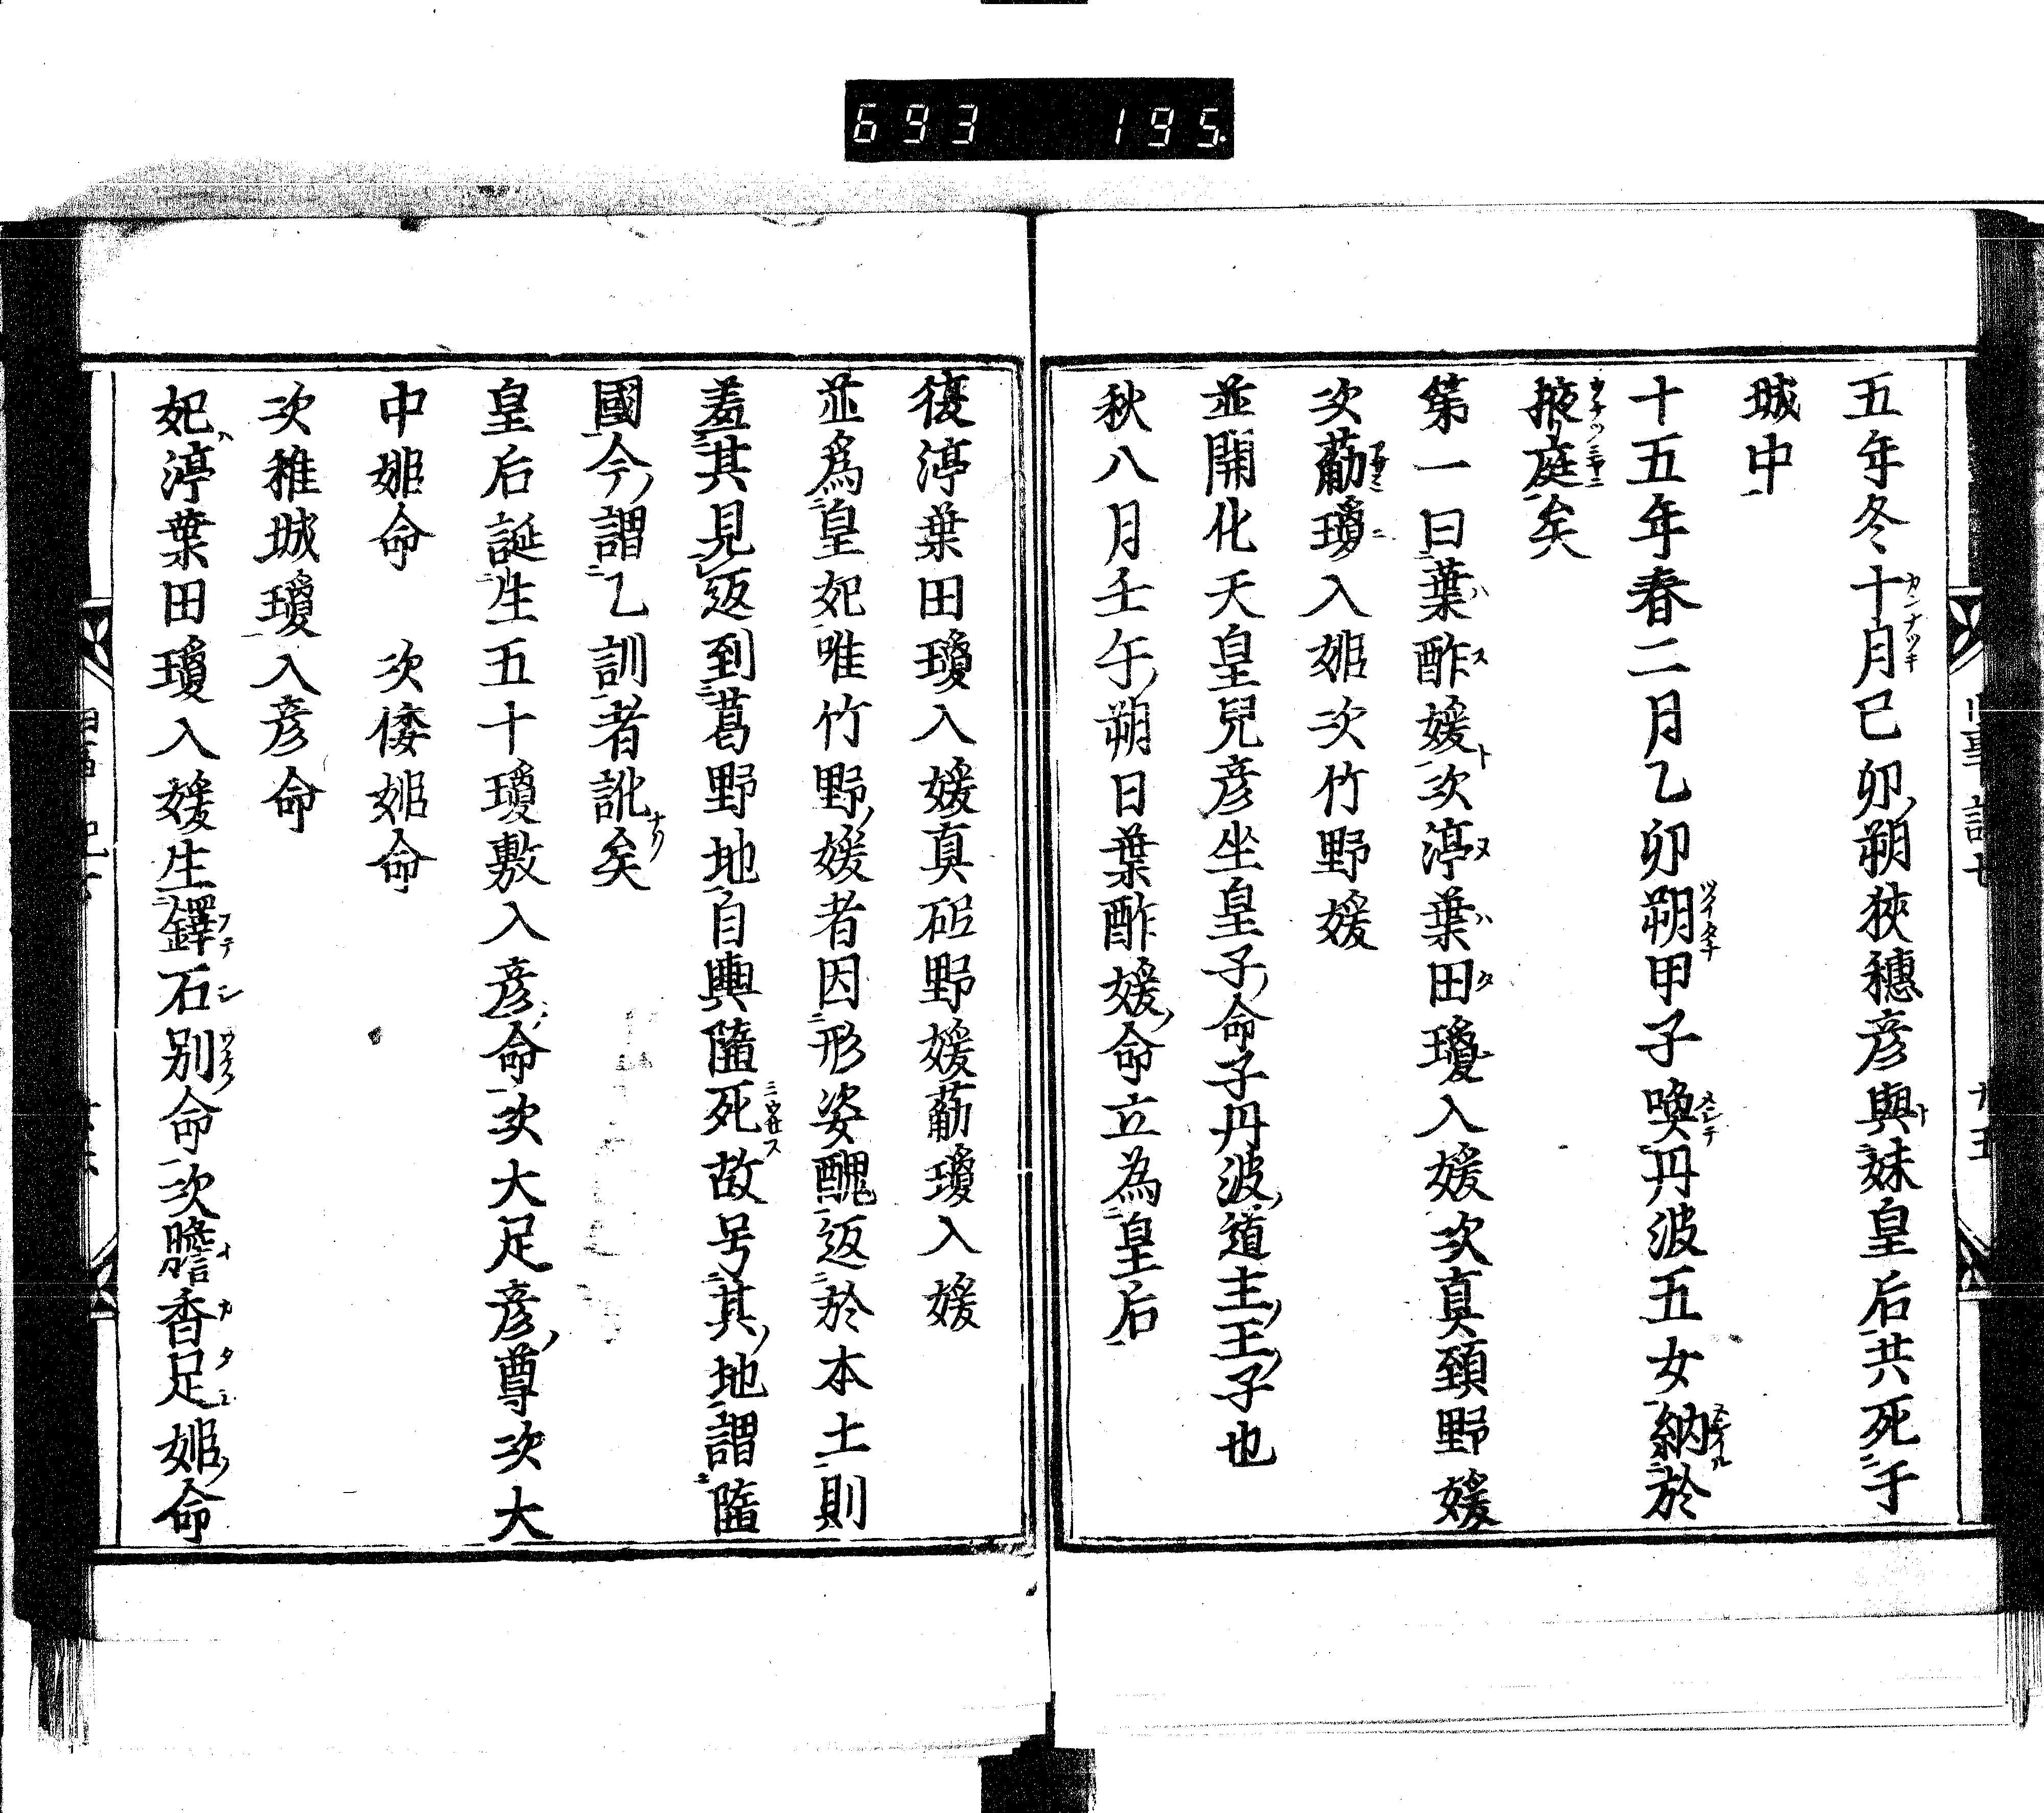 693 195
五年冬十月己卯朔狹穗彦與妹皇后共死于
城中
十五年春二月乙卯朔甲子喚丹波五女納於
掖庭矣
第一曰葉酢媛次渟葉田瓊入媛次真頚野媛
次薊瓊入姫次竹野媛
並開化天皇兒彦坐皇子命子丹波道主王子也
秋八月壬午朔日葉酢媛命立為皇后
復渟葉田瓊入媛真砥野媛薊瓊入媛
並為皇妃唯竹野媛者因形姿醜返於本土則
羞其見返到葛野地自輿隨死故号其地謂隨
國今謂乙訓者訛矣
皇后誕生五十瓊敷入彦命次大足彦尊次大
中姫命 次倭姫命
次稚城瓊入彦命
妃渟葉田瓊入媛生鐸石別命次膽香足姫命